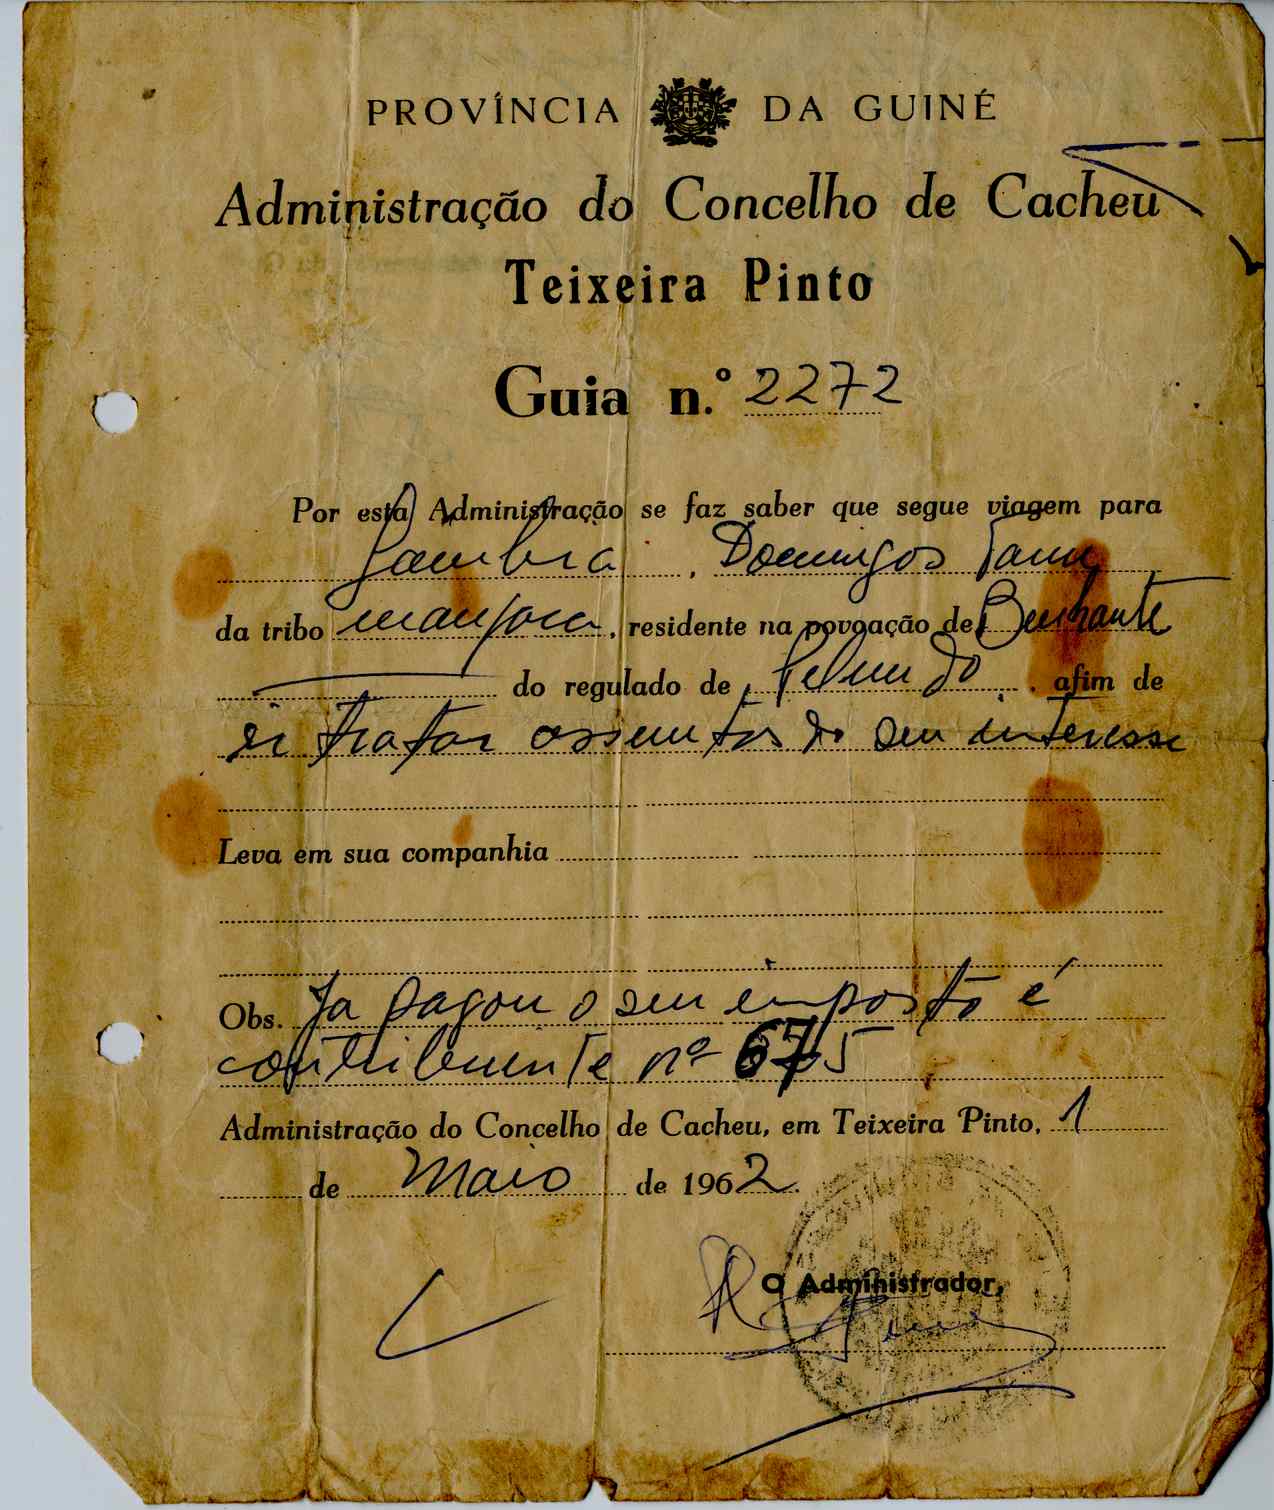 PROVÍNCIA DA GUINÉ
Administração do Concelho de Cacheu
Teixeira Pinto
Guia n.º 2272
Por esta Administração se faz saber que segue viagem para
Gambia, Domingos
da tribo manjaca, residente na povoação de
do regulado de Pelundo, afim de
ir tratar assuntos do seu interesse
Leva em sua companhia
Obs. Ja pagou o seu imposto é
contribuinte nº 675
Administração do Concelho de Cacheu, em Teixeira Pinto, 1
de Maio de 1962.
O Administrador,